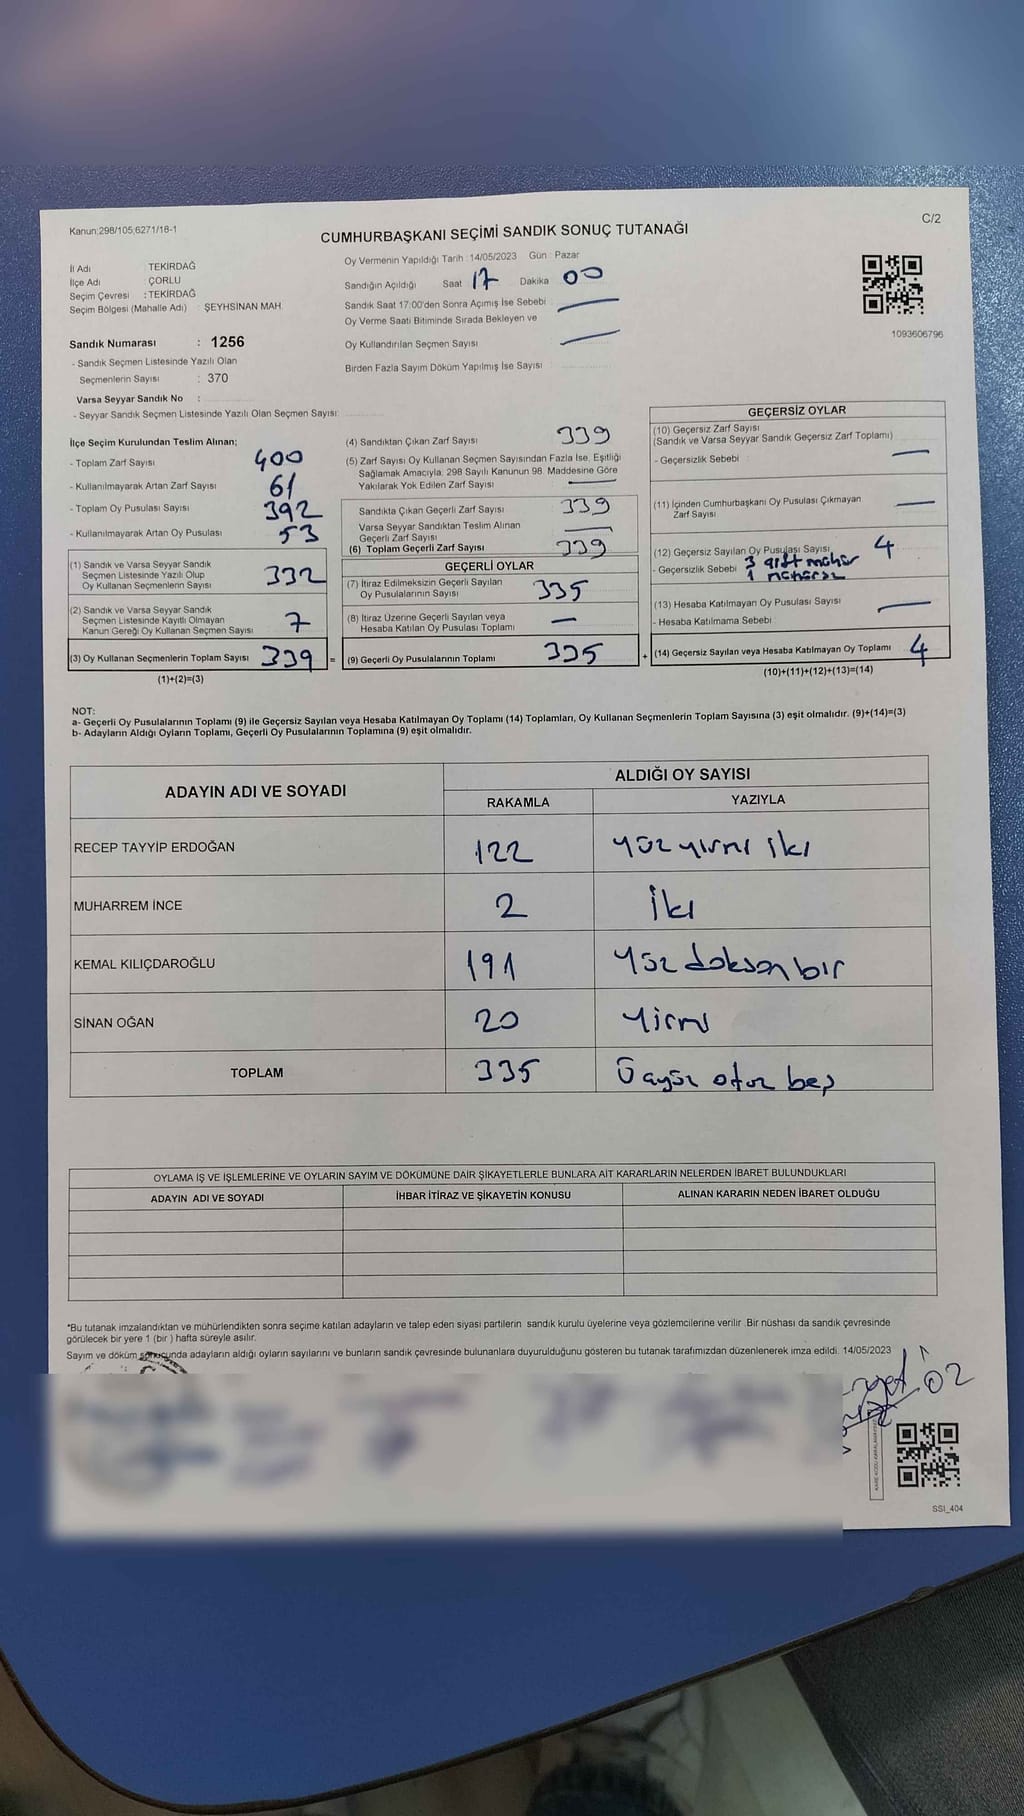 Kanun;298/105;6271/18-1
C/2
CUMHURBAŞKANI SEÇİMİ SANDIK SONUÇ TUTANAĞI
İl Adı TEKİRDAĞ
İlçe Adı ÇORLU
Seçim Çevresi : TEKİRDAĞ
Seçim Bölgesi (Mahalle Adı) ŞEYHSİNAN MAH.
Oy Vermenin Yapıldığı Tarih : 14/05/2023 Gün : Pazar
Sandığın Açıldığı Saat 17 Dakika 00
Sandık Saat 17:00'den Sonra Açımış İse Sebebi
Oy Verme Saati Bitiminde Sırada Bekleyen ve
Oy Kullandırılan Seçmen Sayısı
Birden Fazla Sayım Döküm Yapılmış İse Sayısı
1093606796
Sandık Numarası : 1256
- Sandık Seçmen Listesinde Yazılı Olan
Seçmenlerin Sayısı : 370
Varsa Seyyar Sandık No :
- Seyyar Sandık Seçmen Listesinde Yazılı Olan Seçmen Sayısı:
İlçe Seçim Kurulundan Teslim Alınan;
- Toplam Zarf Sayısı 400
- Kullanılmayarak Artan Zarf Sayısı 61
- Toplam Oy Pusulası Sayısı 392
- Kullanılmayarak Artan Oy Pusulası 53
(1) Sandık ve Varsa Seyyar Sandık
Seçmen Listesinde Yazılı Olup
Oy Kullanan Seçmenlerin Sayısı 332
(2) Sandık ve Varsa Seyyar Sandık
Seçmen Listesinde Kayıtlı Olmayan
Kanun Gereği Oy Kullanan Seçmen Sayısı 7
(3) Oy Kullanan Seçmenlerin Toplam Sayısı 339 =
(1)+(2)=(3)
(4) Sandıktan Çıkan Zarf Sayısı 339
(5) Zarf Sayısı Oy Kullanan Seçmen Sayısından Fazla İse, Eşitliği
Sağlamak Amacıyla; 298 Sayılı Kanunun 98. Maddesine Göre
Yakılarak Yok Edilen Zarf Sayısı
Sandıkta Çıkan Geçerli Zarf Sayısı 339
Varsa Seyyar Sandıktan Teslim Alınan
Geçerli Zarf Sayısı
(6) Toplam Geçerli Zarf Sayısı 339
GEÇERLİ OYLAR
(7) İtiraz Edilmeksizin Geçerli Sayılan
Oy Pusulalarının Sayısı 335
(8) İtiraz Üzerine Geçerli Sayılan veya
Hesaba Katılan Oy Pusulası Toplamı —
(9) Geçerli Oy Pusulalarının Toplamı 335 +
GEÇERSİZ OYLAR
(10) Geçersiz Zarf Sayısı
(Sandık ve Varsa Seyyar Sandık Geçersiz Zarf Toplamı)
- Geçersizlik Sebebi : —
(11) İçinden Cumhurbaşkanı Oy Pusulası Çıkmayan
Zarf Sayısı —
(12) Geçersiz Sayılan Oy Pusulası Sayısı 4
- Geçersizlik Sebebi 3 çift mühür
1 mühürsüz
(13) Hesaba Katılmayan Oy Pusulası Sayısı —
- Hesaba Katılmama Sebebi :
(14) Geçersiz Sayılan veya Hesaba Katılmayan Oy Toplamı 4
(10)+(11)+(12)+(13)=(14)
NOT:
a- Geçerli Oy Pusulalarının Toplamı (9) ile Geçersiz Sayılan veya Hesaba Katılmayan Oy Toplamı (14) Toplamları, Oy Kullanan Seçmenlerin Toplam Sayısına (3) eşit olmalıdır. (9)+(14)=(3)
b- Adayların Aldığı Oyların Toplamı, Geçerli Oy Pusulalarının Toplamına (9) eşit olmalıdır.
ADAYIN ADI VE SOYADI ALDIĞI OY SAYISI
RAKAMLA YAZIYLA
RECEP TAYYİP ERDOĞAN 122 Yüz yirmi iki
MUHARREM İNCE 2 İki
KEMAL KILIÇDAROĞLU 191 Yüz doksan bir
SİNAN OĞAN 20 Yirmi
TOPLAM 335 Üçyüz otuz beş
OYLAMA İŞ VE İŞLEMLERİNE VE OYLARIN SAYIM VE DÖKÜMÜNE DAİR ŞİKAYETLERLE BUNLARA AİT KARARLARIN NELERDEN İBARET BULUNDUKLARI
ADAYIN ADI VE SOYADI İHBAR İTİRAZ VE ŞİKAYETİN KONUSU ALINAN KARARIN NEDEN İBARET OLDUĞU
*Bu tutanak imzalandıktan ve mühürlendikten sonra seçime katılan adayların ve talep eden siyasi partilerin sandık kurulu üyelerine veya gözlemcilerine verilir .Bir nüshası da sandık çevresinde
görülecek bir yere 1 (bir ) hafta süreyle asılır.
Sayım ve döküm sonucunda adayların aldığı oyların sayılarını ve bunların sandık çevresinde bulunanlara duyurulduğunu gösteren bu tutanak tarafımızdan düzenlenerek imza edildi. 14/05/2023
SSI_404